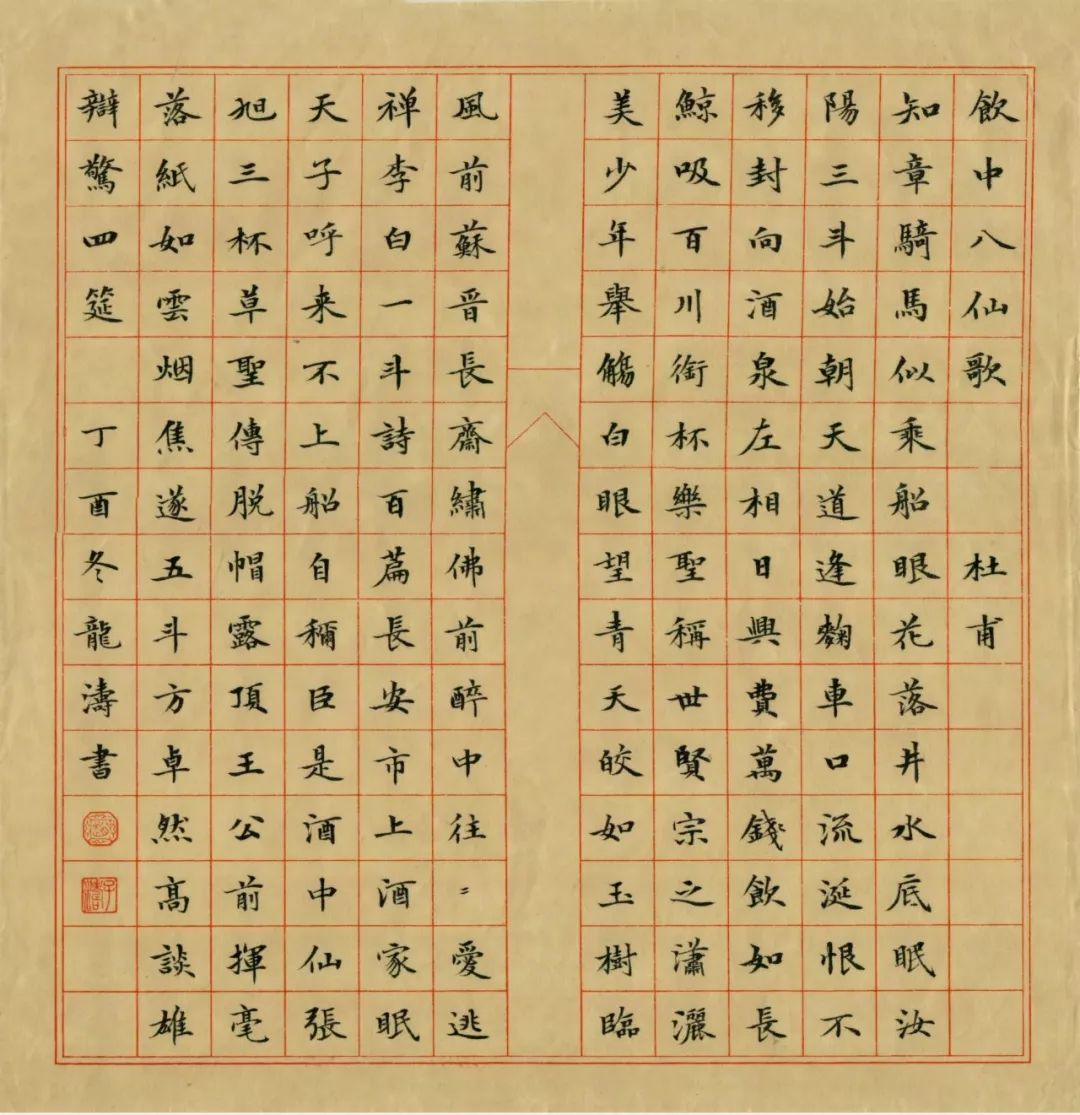 飲中八仙歌 杜甫
知章騎馬似乘船眼花落井水底眠汝
陽三斗始朝天道逢麴車口流涎恨不
移封向酒泉左相日興費萬錢飲如長
鯨吸百川銜杯樂聖稱世賢宗之瀟灑
美少年舉觴白眼望青天皎如玉樹臨
風前蘇晋長齋繡佛前醉中往〻愛逃
禅李白一斗詩百篇長安市上酒家眠
天子呼来不上船自稱臣是酒中仙張
旭三杯草聖傳脱帽露頂王公前揮毫
落紙如雲烟焦遂五斗方卓然高談雄
辯驚四筵 丁酉冬龍濤書